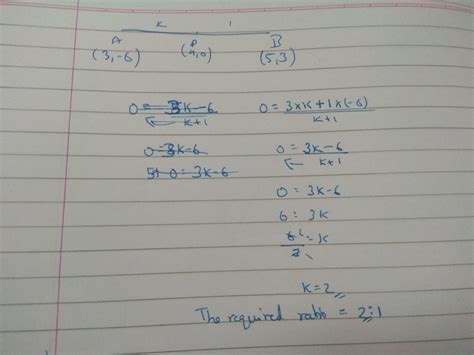 K 1
A P B
(3,-6) (4,0) (5,3)
0 = 3K-6 / K+1
0 = 3K-6
0 = 3K-6
0 = 3×K+1×(-6) / K+1
0 = 3K-6 / K+1
0 = 3K-6
6 = 3K
6 2 / 3 = K
K = 2
The required ratio = 2:1